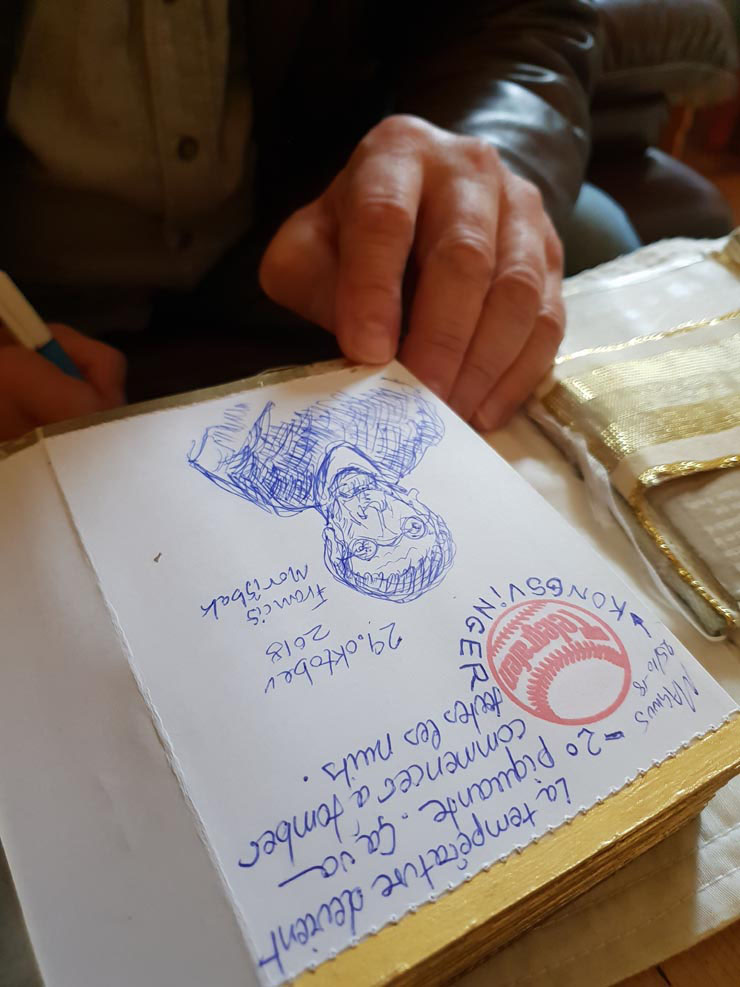 La température devient
-20 piquante. Ça va
commencer à tomber
toutes les nuits.
Magnus
25/10-18
KONGSVINGER
Telegrafen
29. oktober
2018
Francis
Morisbak